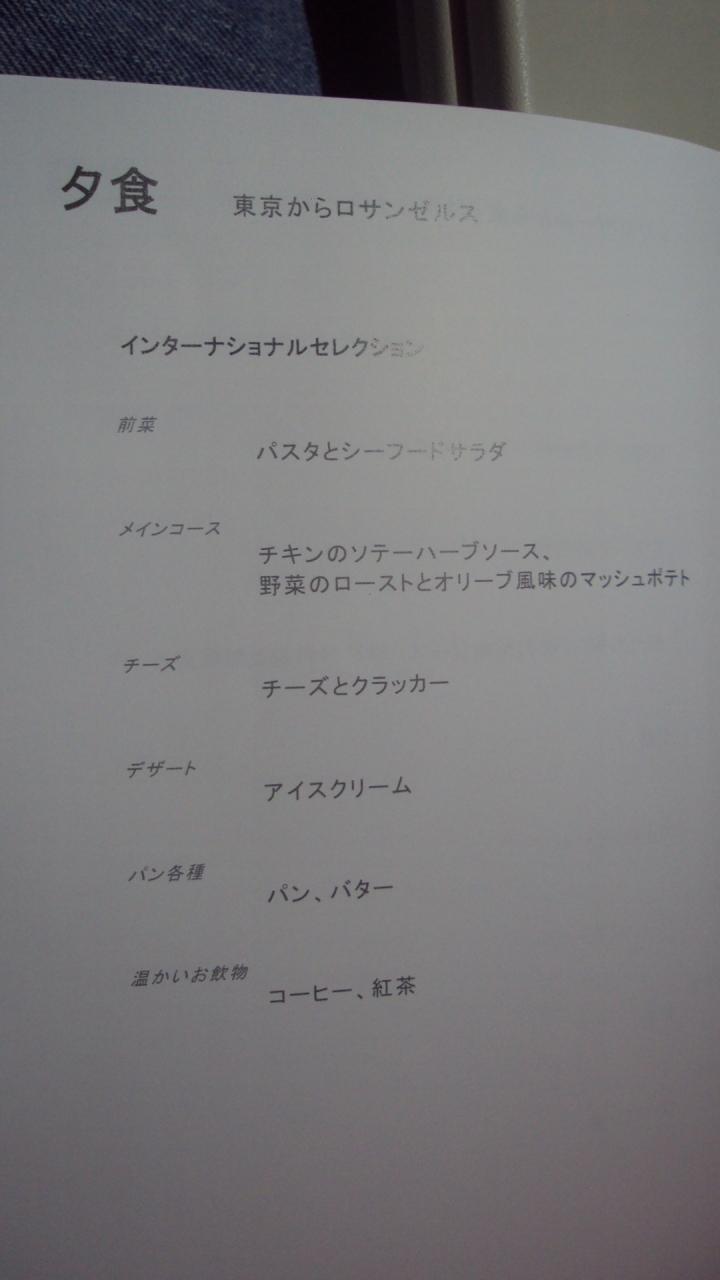 夕食 東京からロサンゼルス
インターナショナルセレクション
前菜
パスタとシーフードサラダ
メインコース
チキンのソテーハーブソース、
野菜のローストとオリーブ風味のマッシュポテト
チーズ
チーズとクラッカー
デザート
アイスクリーム
パン各種
パン、バター
温かいお飲物
コーヒー、紅茶